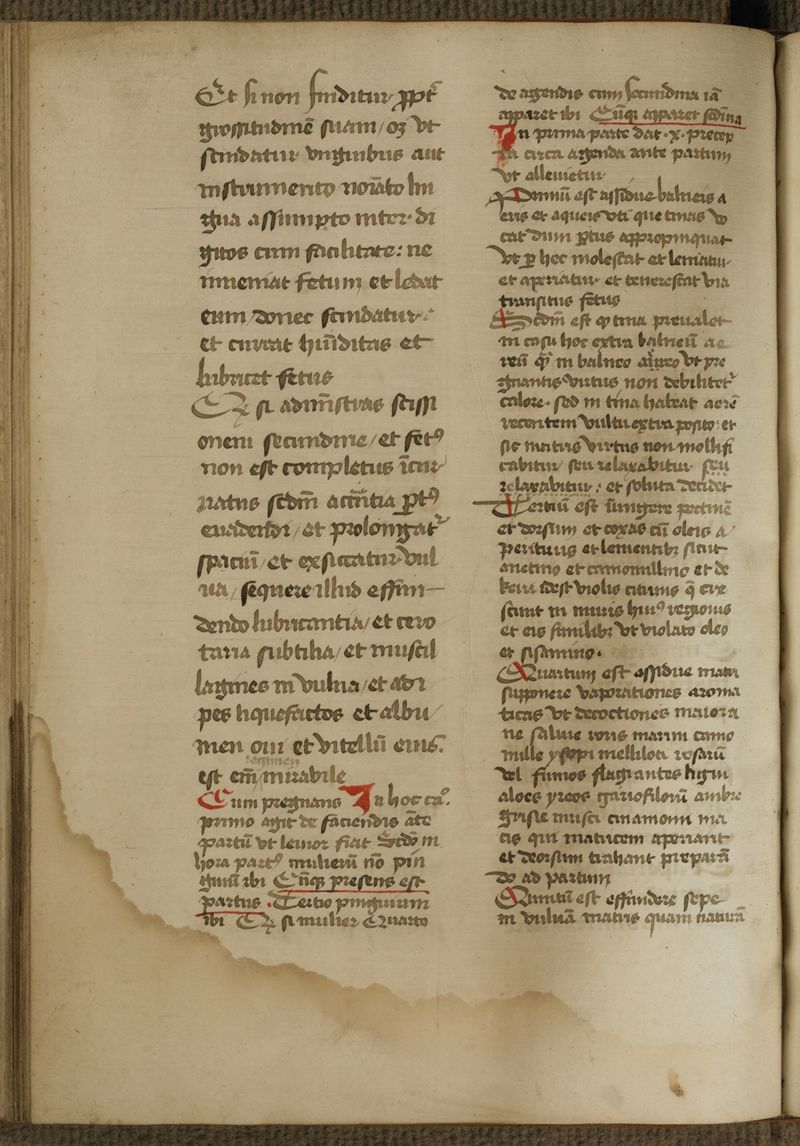 Et si non finditur ꝓpt̄
grossitudinē suam / oꝫ vt
scindatur vnguibus aut
instrumento noīato lin
gua assumpto inter di
gitos cum facilitate: ne
inueniat fetum et ledat
eum donec scindatur
et currat hūiditas et
lubricet fetus
Et si adm̄stras scissi
onem secundine / et fetꝰ
non est completus
spaciū / et exsiccatur vul
ua / sequere illud effun
dendo lubricantia / et cero
taria subtilia / et muscil
lagines in vulua / et adi
pes liquefactos et albu
men oui et vitellū eius.
est em̄ mirabile
Cum pregnans In hoc ca.
primo agit de faciendis an̄te
partū vt leuior fiat Scd̄o in
hora partꝰ mulierū nō pin
guiū ibi Cūqꝫ presens est
partus . Tertio pinguium
ibi Et si mulier Quarto
de agendis cum secundina iā
apparet ibi Cūqꝫ apparet scd̄ina
In prima parte dat .x. precep
ta circa agenda ante partum
vt alleuietur
Primū est assidue balneis a
eris et aqueis vti que tinas vo
cat dum ꝑtus appropinquat
vt ꝑ hoc molescat et leniatur
et aperiatur et tenerescat via
transitus fetus
Scd̄m est ꝙ tina preualet
in casu hoc extra balneū ae
reū in balneo aereo vt pre
gnantis virtus non debilitet
calore . sed in tina habeat aerē
recentem vultu extra posito et
sic matris virtus non mollifi
cabitur seu relaxabitur seu
relaxabitur : et soluta decidet
Tertiū est īungere pectinē
et dorsum et coxas cū oleis a
peritiuis et lenientibꝫ sicut
anetino et camomillino et de
keiri idest violis citrinis
sunt in muris huiꝰ regionis
et eis similibꝫ vt violato oleo
et sisamino .
Quartum est assidue matri
supponere vaporationes aroma
ticas vt decoctiones maiora
ne saluie roris marini camo
mille ysopi melliloti rosarū
vel fumos flagrantes ligni
aloes yreos gariofilorū ambre
grisie musci cinamomi ma
cis qui matricem aperiant
et deorsum trahant preparā
do ad partum
Quintū est effundere sepe
in vuluā matris quam naturā